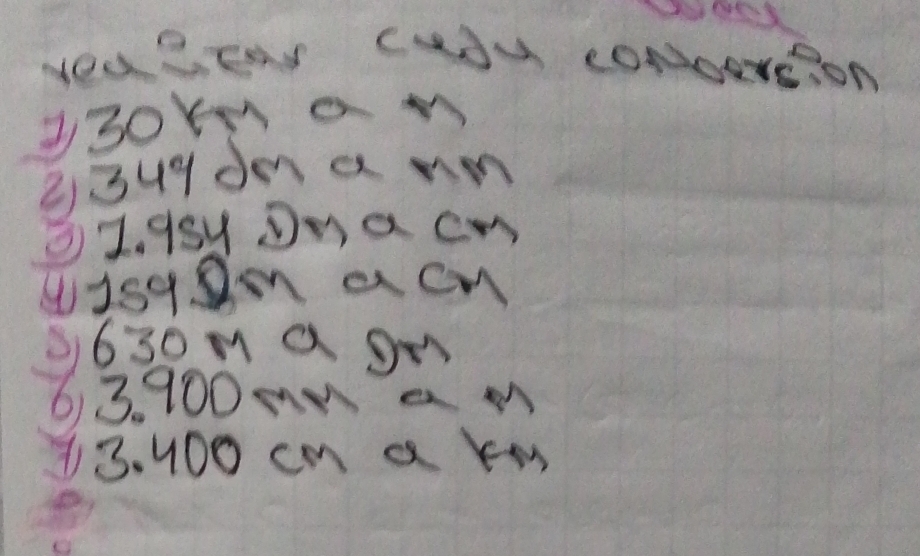 realizar cada conversion
1) 30 km a m
2) 349 dm a mm
3) 1.954 Dm a cm
4) 159 Dm a cm
5) 630 m a Dm
6) 3.900 mm a m
7) 3.400 cm a km